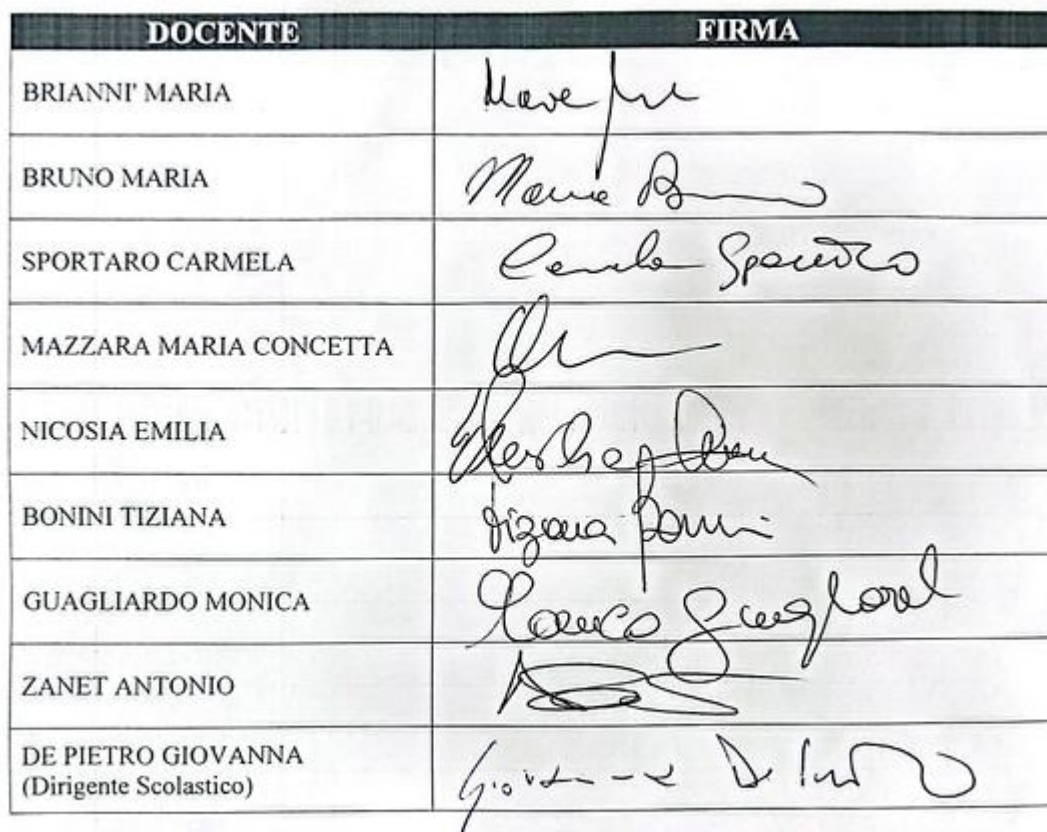 DOCENTE FIRMA
BRIANNI' MARIA
BRUNO MARIA Maria Bruno
SPORTARO CARMELA Carmela Sportaro
MAZZARA MARIA CONCETTA
NICOSIA EMILIA
BONINI TIZIANA Tiziana Bonini
GUAGLIARDO MONICA Monica
ZANET ANTONIO
DE PIETRO GIOVANNA Giovanna De Pietro
(Dirigente Scolastico)